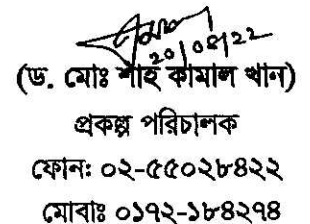 20/08/22
(ড. মোঃ শাহ কামাল খান)
প্রকল্প পরিচালক
ফোনঃ ০২-৫৫০২৮৪২২
মোবাঃ ০১৭২-১৮৪২৭৪